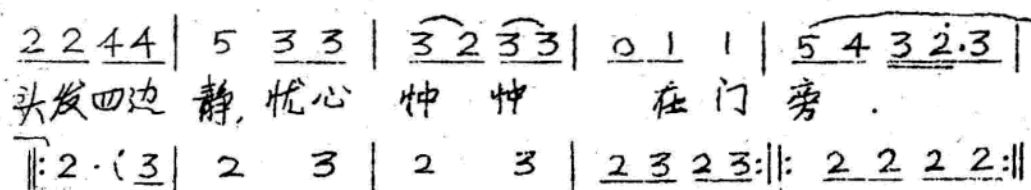 2 2 4 4 | 5 3 3 | 3 2 3 3 | 0 1 1 | 5 4 3 2.3 |
头发四边 静,忧心 忡 忡 在 门 旁 .
‖: 2 · ( 3 | 2 3 | 2 3 | 2 3 2 3 :‖: 2 2 2 2 :‖